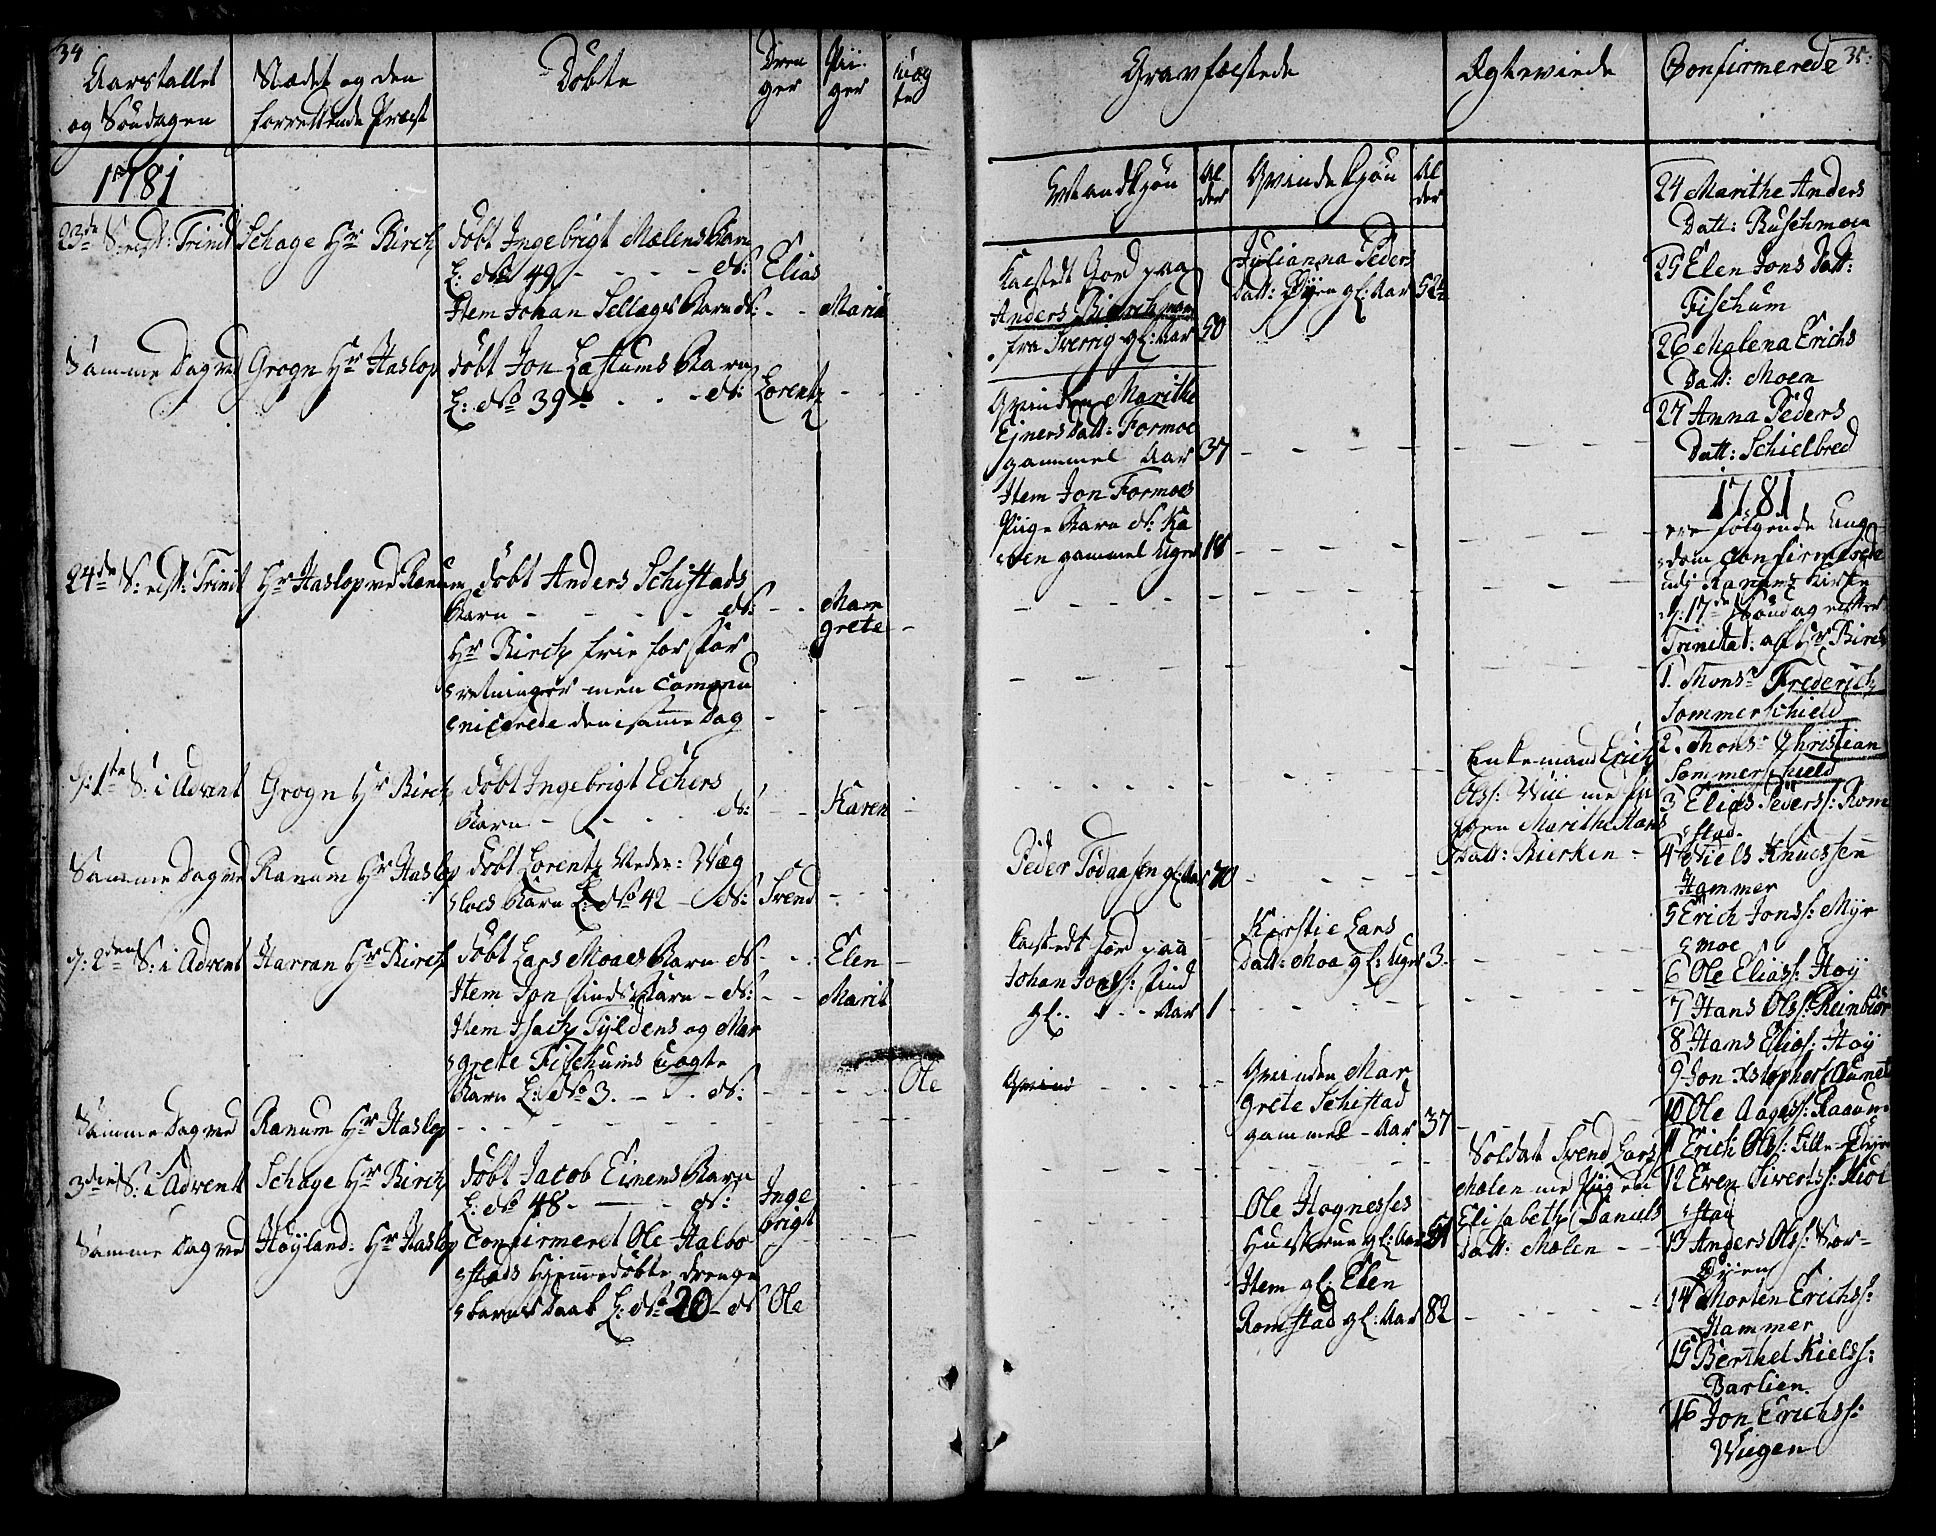 34
Aarstallet
og Søndagen
Stædet og den
forrettende Præst
Døbte
Dren
ger
Pii-
ger
uæg
te
1781
23de S: eft: Trinit
Schage Hr Birch
døbt Ingebrigt Mælens Barn
L: No 49 - - - - N:
Elias
Item Johan Sellegs Barn N: - -
Marit
Samme Dag ved
Grogn Hr Haslop
døbt Jon Hastums Barn
L: No 39 - - - N:
Lorentz
24de S: eft: Trinit
Hr Haslop ved Ranum
døbt Anders Schistads
Barn - - - - - N:
Mar
grete
Hr Birch frie for for
retninger men commu
nicerede den samme Dag
d: 1te S: i Advent
Grogn Hr Birch
døbt Ingebrigt Echers
Barn - - - - N:
Karen
Samme Dag ved
Ranum Hr Haslop
døbt Lorentz Neder: Wæg
sloes Barn L: No 42 - N:
Svend
d: 2den S: i Advent
Harran Hr Birch
døbt Lars Moaes Barn N:
Elen
Item Jon Linds Barn - N:
Marit
Item Isach Tyldens og Mar
grete Fischums uægte
Barn L: No 3. - - N:
Ole
Samme Dag ved
Ranum Hr Haslop
3die S: i Advent
Schage Hr Birch
døbt Jacob Eimens Barn
L: No 48 - - - N:
Inge
brigt
Samme Dag ved
Høyland: Hr Haslop
Confirmeret Ole Halbo
stads Hjemmedøbte Drenge
barns Daab L: No 20 - N:
Ole
35
Gravfæstede
Mandkjøn
Al
der
Qvindekjøn
Al
der
Kastedt Jord paa
Anders Bierchmoe
fra Sverrig gl: Aar
50
Julianna Peders
Datt: Øyen gl: Aar
52½
Qvinden Marithe
Ejners Datt: Formoe
gammel Aar
37
Item Jon Formoes
Piige Barn N: Ka
ren gammel Uger
18
Peder Tødaasen gl: Aar
70
Kastedt Jord paa
Johan Jonss: Lind
gl: - - - Aar
1
Kirstie Lars
Datt: Moa gl: Uger
3
Qvind
Qvinden Mar
grete Schistad
gammel - Aar
37
Ole Hognesses
Hustrue gl: Aar
51
Item gl: Elen
Romstad gl: Aar
82
Ægteviede
Enkemand Erich
Olss: Wiie med Pi
gen Marithe Hans
Datt: Bierken -
Soldat Svend Lars
Mælen med Pigen
Elisabeth Daniels
Datt: Mælen - -
Confirmerede
24 Marithe Anders
Datt: Ruschmoen
25 Elen Jons Datt:
Fischum
26 Malena Erichs
Datt: Moen
27 Anna Peders
Datt: Schielbred
1781
ere følgende Ung
dom Confirmerede
udj Ranems Kirke
d: 17de Søndag efter
Trinitat: af Hr Birch
1. Monsr Frederich
Sommerschield
2. Monsr Christian
Sommerschield
3 Elias Peders: Rom
stad
4 Niels Knudssen
Hammer
5 Erich Jonss: Myr
moe
6 Ole Eliass: Høy
7 Hans Olss: Reinbiør
8 Hans Elias: Høy
9 Jon Xstophers: Aunet
10 Ole Aagess: Raaum
11 Erich Olss: Lille-Øyen
12 Even Siverts: Rue
stad
13 Anders Olss: Stor-
Øyen
14 Morten Erichss:
Hammer
15 Berthel Kielss:
Barlien
16 Jon Erichss:
Wiigen